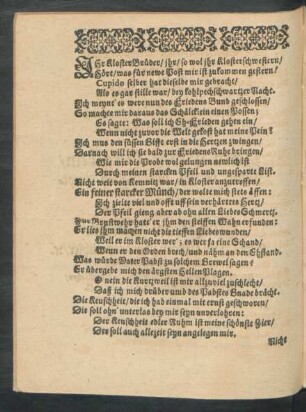 IHr Kloster Brüder/ jhr/ so wol jhr Klosterschwestern/
Hört/ was für newe Post mir ist zukommen gestern!
Cupido selber hat dieselbe mir gebracht/
Als es gar stille war/ bey kohlpechschwartzer Nacht.
Ich meynt' es were nun des Friedens Bund geschlossen/
So machte mir daraus das Schälcklein einen Possen;
Es sagte: Was soll ich Eh-Frieden gehn ein/
Wenn nicht zuvor die Welt gekost hat meine Pein?
Ich mus den süssen Gifft erst in die Hertzen zwingen/
Darnach will ich sie bald zur Friedens Ruhe bringen/
Wie mir die Probe wol gelungen newlich ist
Durch meinen starcken Pfeil und ungesparte List.
Nicht weit von Kemnitz war im Kloster anzutreffen/
Ein feiner starcker Münich/ der wolte mich stets äffen:
Ich zielte viel und offt uff sein verhärtets Hertz/
Der Pfeil gieng aber ab ohn allen Liebes Schmertz.
Er lies ihm machen nicht die tieffen Liebeswunden/
Weil er im Kloster wer'; es wer ja eine Schand/
Wenn er den Orden brech/ und nähm an den Ehstand.
Was würde Vater Pabst zu solchem Grewel sagen?
Er übergebe mich den ärgsten Hellen Plagen.
O nein die Kurtzweil ist mir allzuviel zuschlecht/
Daß ich mich drüber umb des Pabstes Gnade brächt.
Die Keuschheit/ die ich hab einmal mit ernst geschworen/
Die soll ohn' unterlas bey mir seyn unverlohren:
Der Keuschheit edler Ruhm ist meine schönste Zier/
Der soll auch allezeit seyn angelegen mir.
Nicht